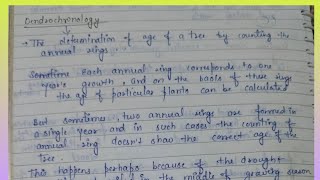 Dendrochronology
→ The determination of age of a tree by counting the
annual rings.
Sometime Each annual ring corresponds to one
year's growth, and on the basis of these rings
the age of particular plants can be calculated
But sometime, two annual rings are formed in
a single year and in such cases the counting of
annual ring doesn't show the correct age of the
tree.
This happens perhaps because of the drought
in the middle of growing season